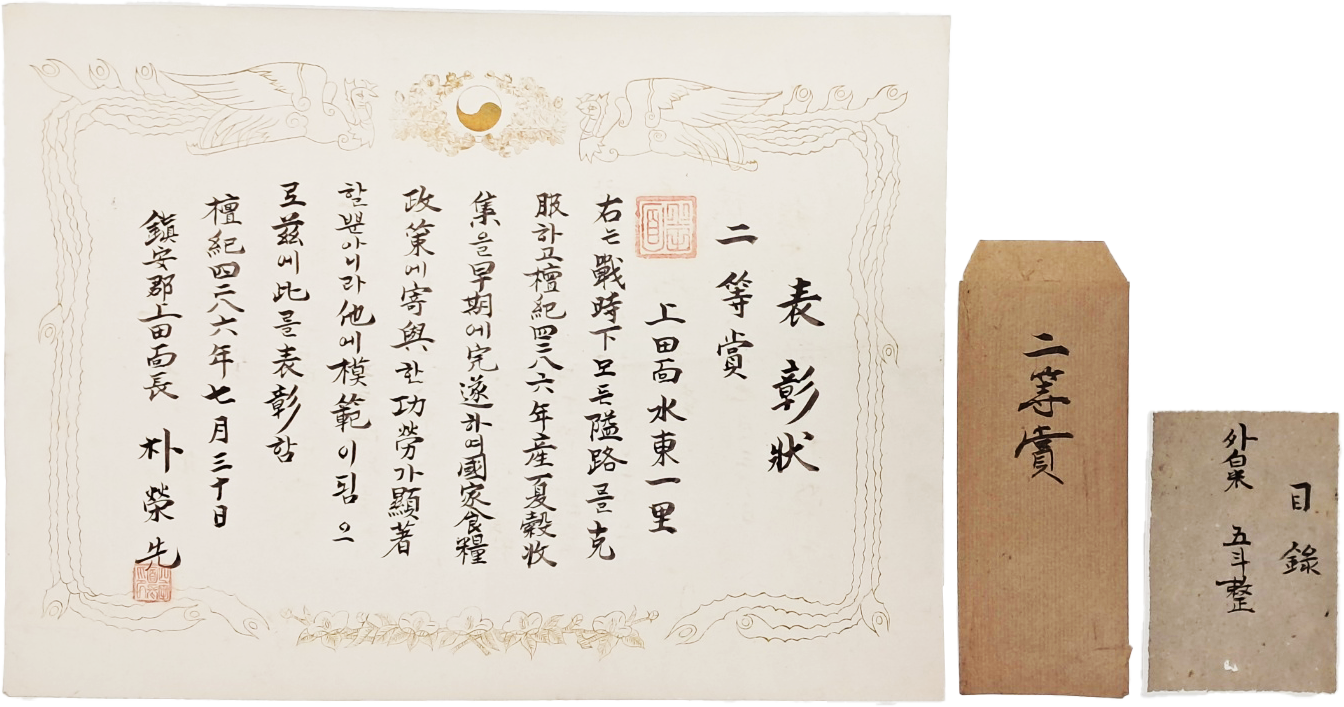 表彰狀
二等賞
上田面水東一里
右는戰時下모든隘路를克
服하고檀紀四二八六年産夏穀收
集을早期에完遂하여國家食糧
政策에寄與한功勞가顯著
할뿐아니라他에模範이됨으
로玆에此를表彰함
檀紀四二八六年七月三十日
鎭安郡上田面長 朴榮先
二等賞
目錄
外白米 五斗整